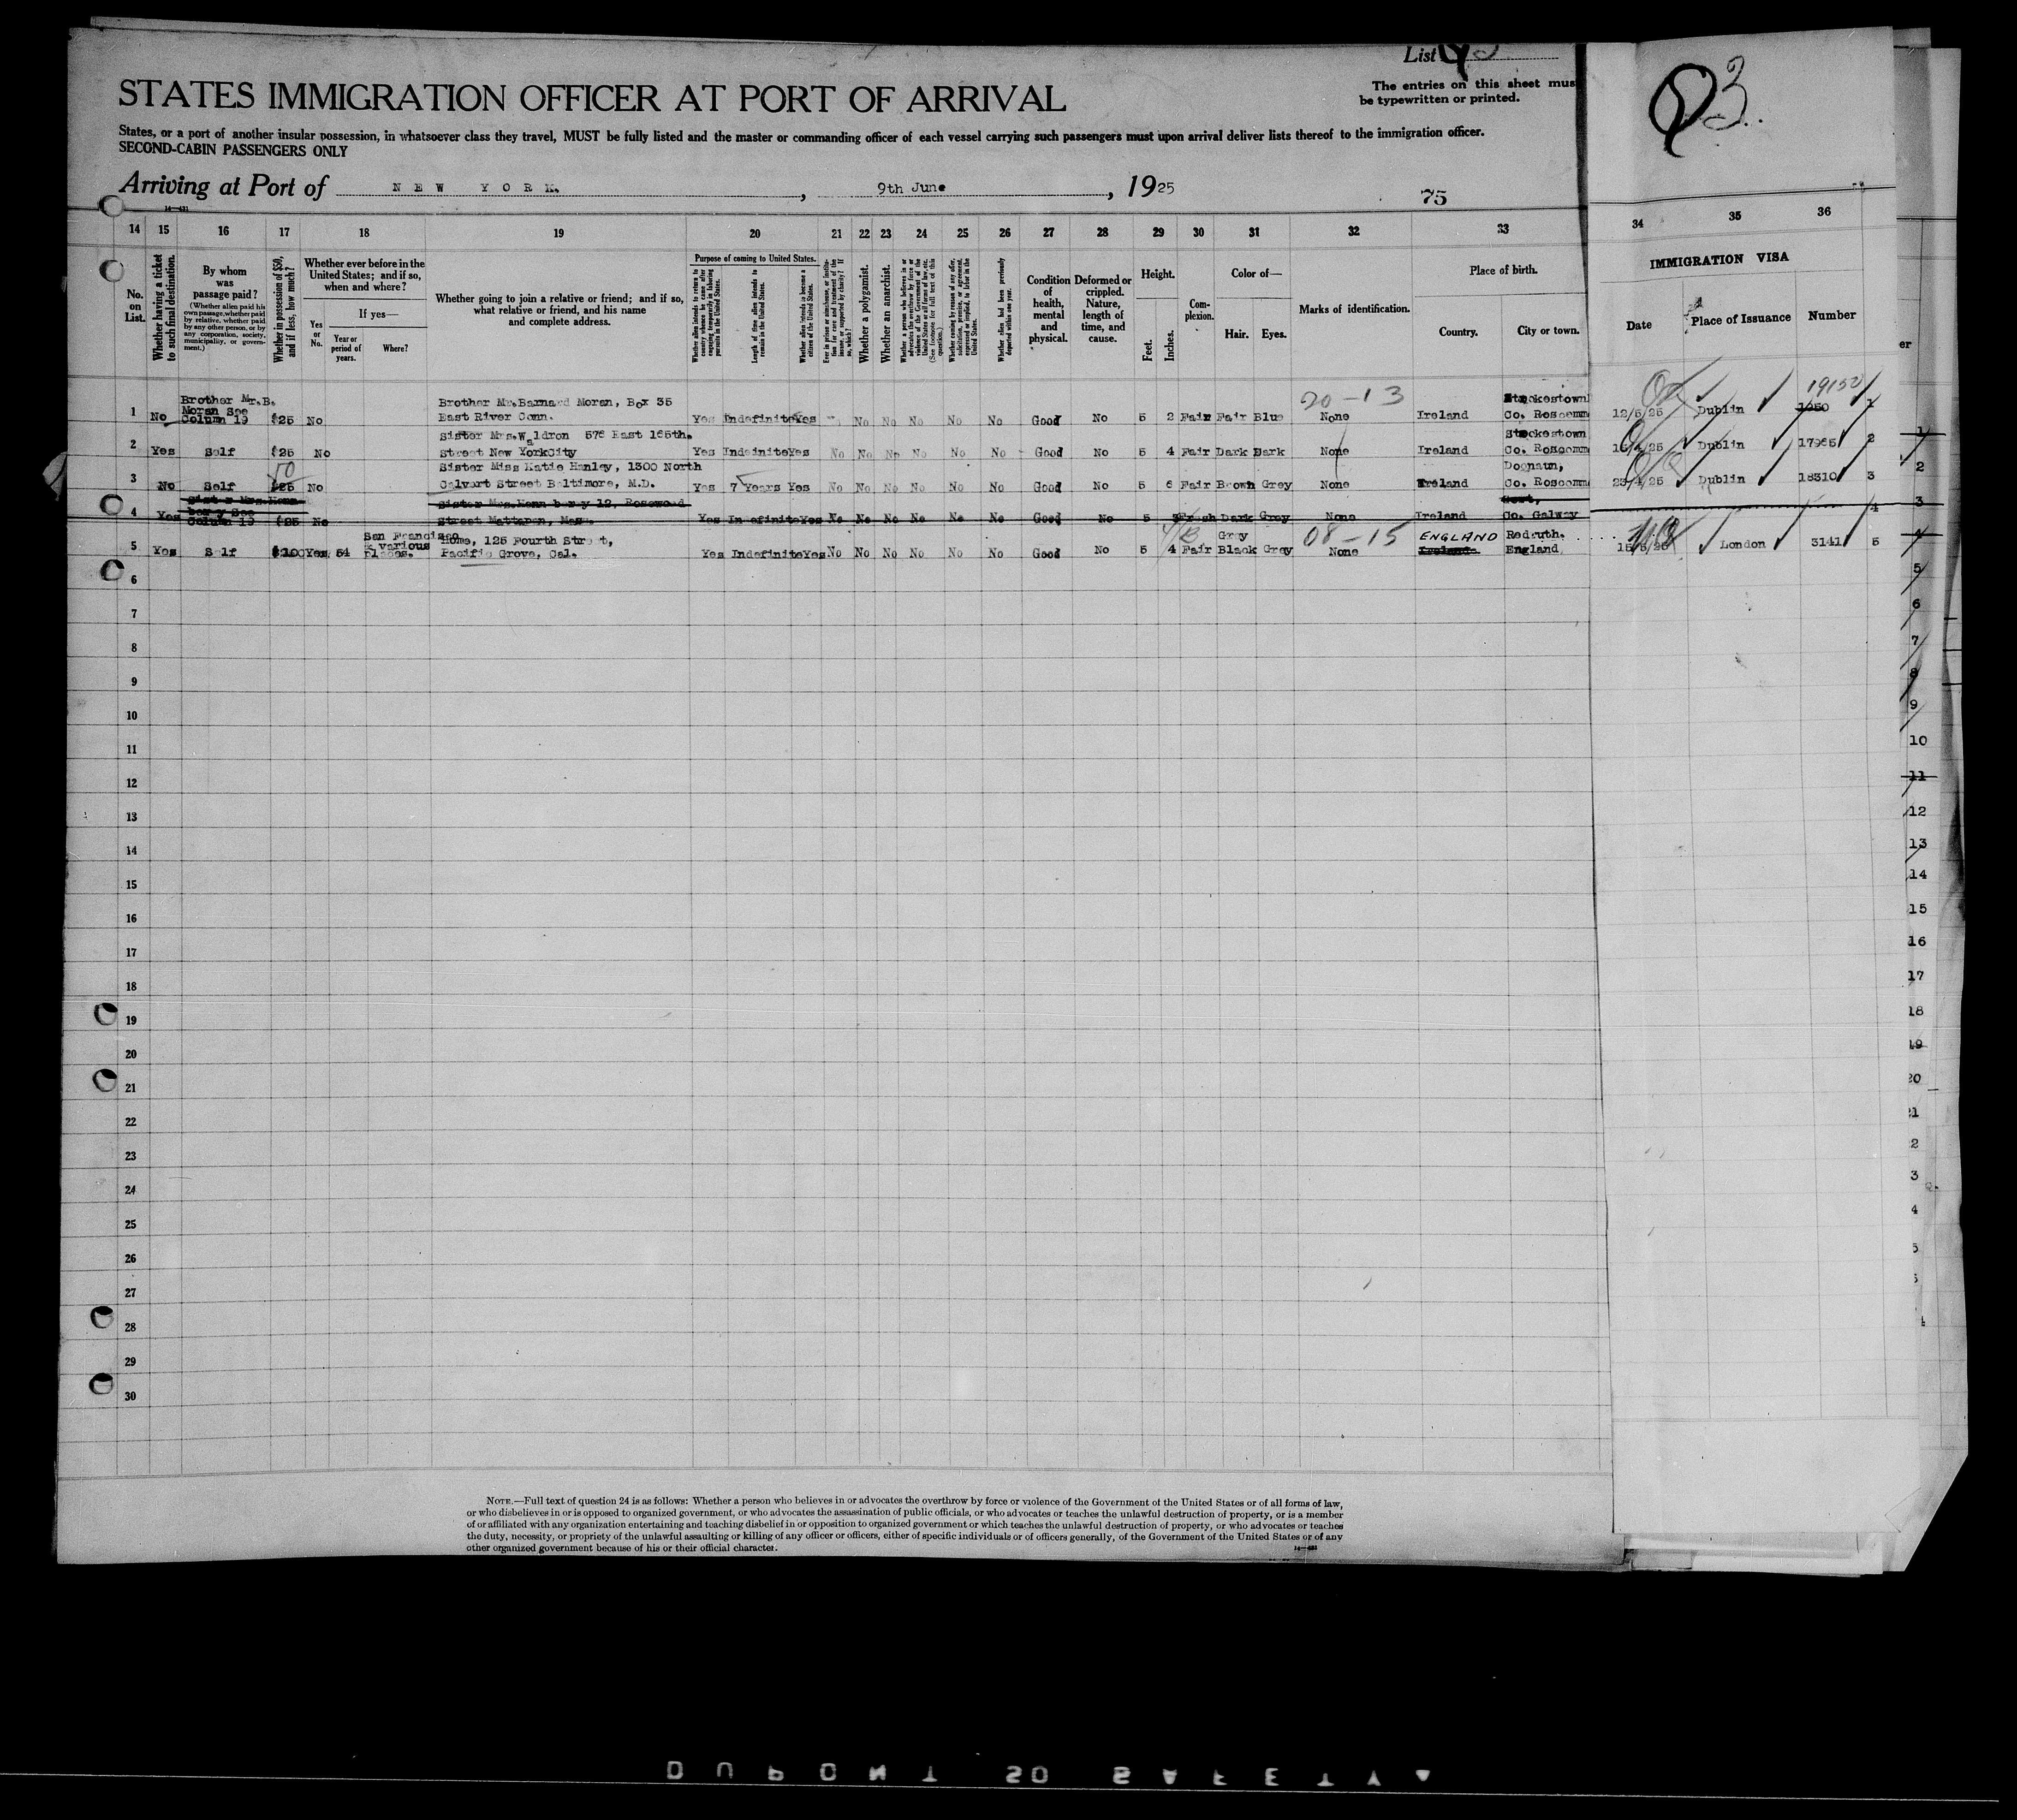 List
The entries on this sheet mus
be typewritten or printed.
STATES IMMIGRATION OFFICER AT PORT OF ARRIVAL
States, or a port of another insular possession, in whatsoever class they travel, MUST be fully listed and the master or commanding officer of each vessel carrying such passengers must upon arrival deliver lists thereof to the immigration officer.
SECOND-CABIN PASSENGERS ONLY
Arriving at Port of NEW YORK. , 9th June , 1925
75
14 15 16 17 18 19 20 21 22 23 24 25 26 27 28 29 30 31 32 33 34 35 36
No. on List.
Whether having a ticket to such final destination.
By whom was passage paid?
(Whether alien paid his own passage, whether paid by relative, whether paid by any other person, or by any corporation, society, municipality, or government.)
Whether in possession of $50, and if less, how much?
Whether ever before in the United States; and if so, when and where?
Yes or No.
If yes—
Year or period of years.
Where?
Whether going to join a relative or friend; and if so, what relative or friend, and his name and complete address.
Purpose of coming to United States.
Whether alien intends to return to country whence he came after engaging temporarily in laboring pursuits in the United States.
Length of time alien intends to remain in the United States.
Whether alien intends to become a citizen of the United States.
Whether a polygamist.
Whether an anarchist.
Condition of health, mental and physical.
Deformed or crippled. Nature, length of time, and cause.
Height.
Feet.
Inches.
Complexion.
Color of—
Hair.
Eyes.
Marks of identification.
Place of birth.
Country.
City or town.
IMMIGRATION VISA
Date
Place of Issuance
Number
20-13
19150
1 No Brother Mr.B. Moran See Column 19 $25 No Brother Mr.Barnard Moran, Box 35 East River Conn. Yes Indefinite Yes No No No No No Good No 5 2 Fair Fair Blue None Ireland Co. Roscomm 12/5/25 Dublin 1
2 Yes Self $25 No Sister Mrs.Waldron 578 East 165th. Street New YorkCity Yes Indefinite Yes No No No No No No Good No 5 4 Fair Dark Dark None Ireland Co. Roscomm Dublin 17985 2
3 No Self 50 $25 No Sister Miss Katie Hanley, 1300 North Calvert Street Baltimore, M.D. Yes 7 Years Yes No No No No No No Good No 5 6 Fair Brown Grey None Ireland Co. Roscomm 23/4/25 Dublin 18310 3
4 Yes Column 19 $25 No Yes Indefinite Yes No No No No No No Good No 5 Fresh Dark Grey None Ireland Co. Galway 4
08-15
5 Yes Self $100 Yes 54 San Francisco & various Places. Home, 125 Fourth Street, Pacific Grove, Cal. Yes Indefinite Yes No No No No No No Good No 5 4 Fair Grey Black Grey None ENGLAND Ireland Redruth. England 15/5/25 London 3141 5
6
7
8
9
10
11
12
13
14
15
16
17
18
19
20
21
22
23
24
25
26
27
28
29
30
NOTE.—Full text of question 24 is as follows: Whether a person who believes in or advocates the overthrow by force or violence of the Government of the United States or of all forms of law,
or who disbelieves in or is opposed to organized government, or who advocates the assassination of public officials, or who advocates or teaches the unlawful destruction of property, or is a member
of or affiliated with any organization entertaining and teaching disbelief in or opposition to organized government or which teaches the unlawful destruction of property, or who advocates or teaches
the duty, necessity, or propriety of the unlawful assaulting or killing of any officer or officers, either of specific individuals or of officers generally, of the Government of the United States or of any
other organized government because of his or their official character.
DUPONT SO SAFETY